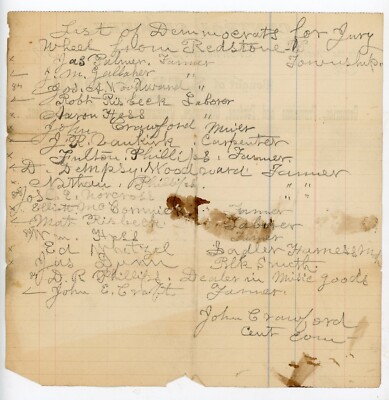 List of Demmocrats for Jury
Wheel from Redstone
Township
Jas Palmer, Farmer
J. M. Gallaher "
Woodward "
Robt Risbeck Laborer
Aaron Hess "
John Crawford Miner
Vankirk, Carpenter
Fulton Phillips, Farmer
D. Dempsy Woodward Farmer
Nathan Phillips " "
Jos. E. " "
Farmer
Mat Risbeck Laborer
Wm. Hess "
Ed Sadler Harness
Jas Dunn Blk Smith
D. R Phillips, Dealer in Music goods
John E. Craft Farmer
John Crawford
Cent Com